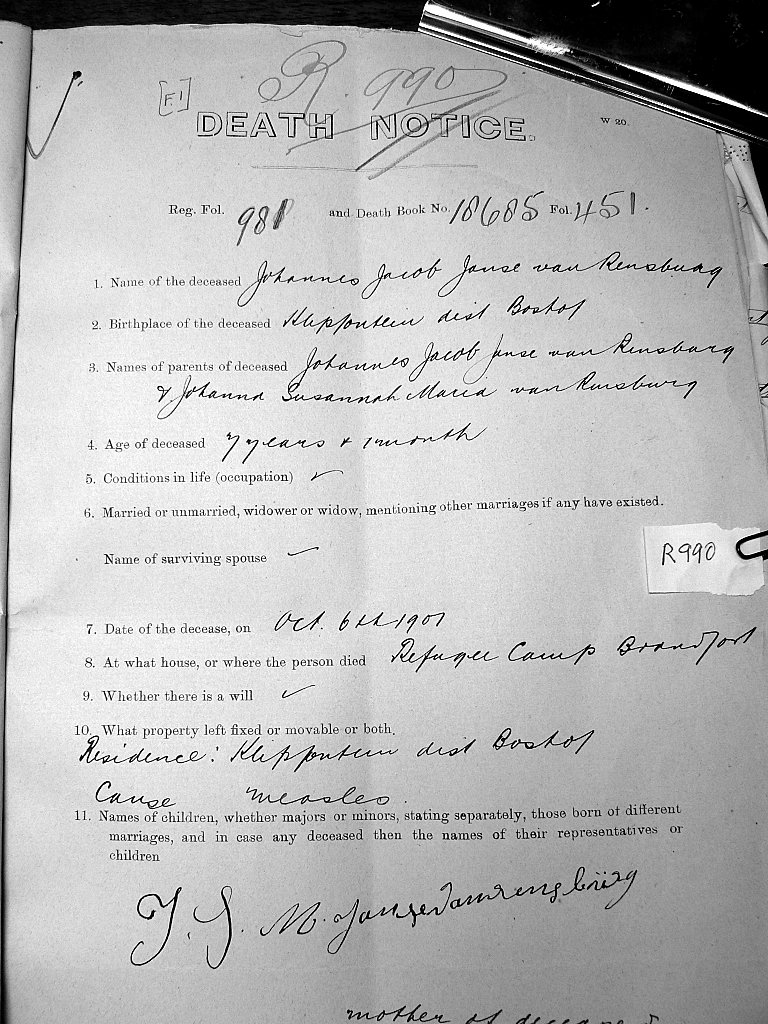 R. 990
[F.1]
DEATH NOTICE.
W 20.
Reg. Fol. 981 and Death Book No. 18685 Fol. 451.
1. Name of the deceased Johannes Jacob Janse van Rensburg
2. Birthplace of the deceased Klipfontein dist Boshof
3. Names of parents of deceased Johannes Jacob Janse van Rensburg
& Johanna Susannah Maria van Rensburg
4. Age of deceased 7 years & 1 month
5. Conditions in life (occupation)
6. Married or unmarried, widower or widow, mentioning other marriages if any have existed.
Name of surviving spouse
R990
7. Date of the decease, on Oct. 6th 1901
8. At what house, or where the person died Refugee Camp Brandfort
9. Whether there is a will
10. What property left fixed or movable or both.
Residence: Klipfontein dist Boshof
Cause measles.
11. Names of children, whether majors or minors, stating separately, those born of different
marriages, and in case any deceased then the names of their representatives or
children
J. S. M. Jansevanrensburg
mother of deceased